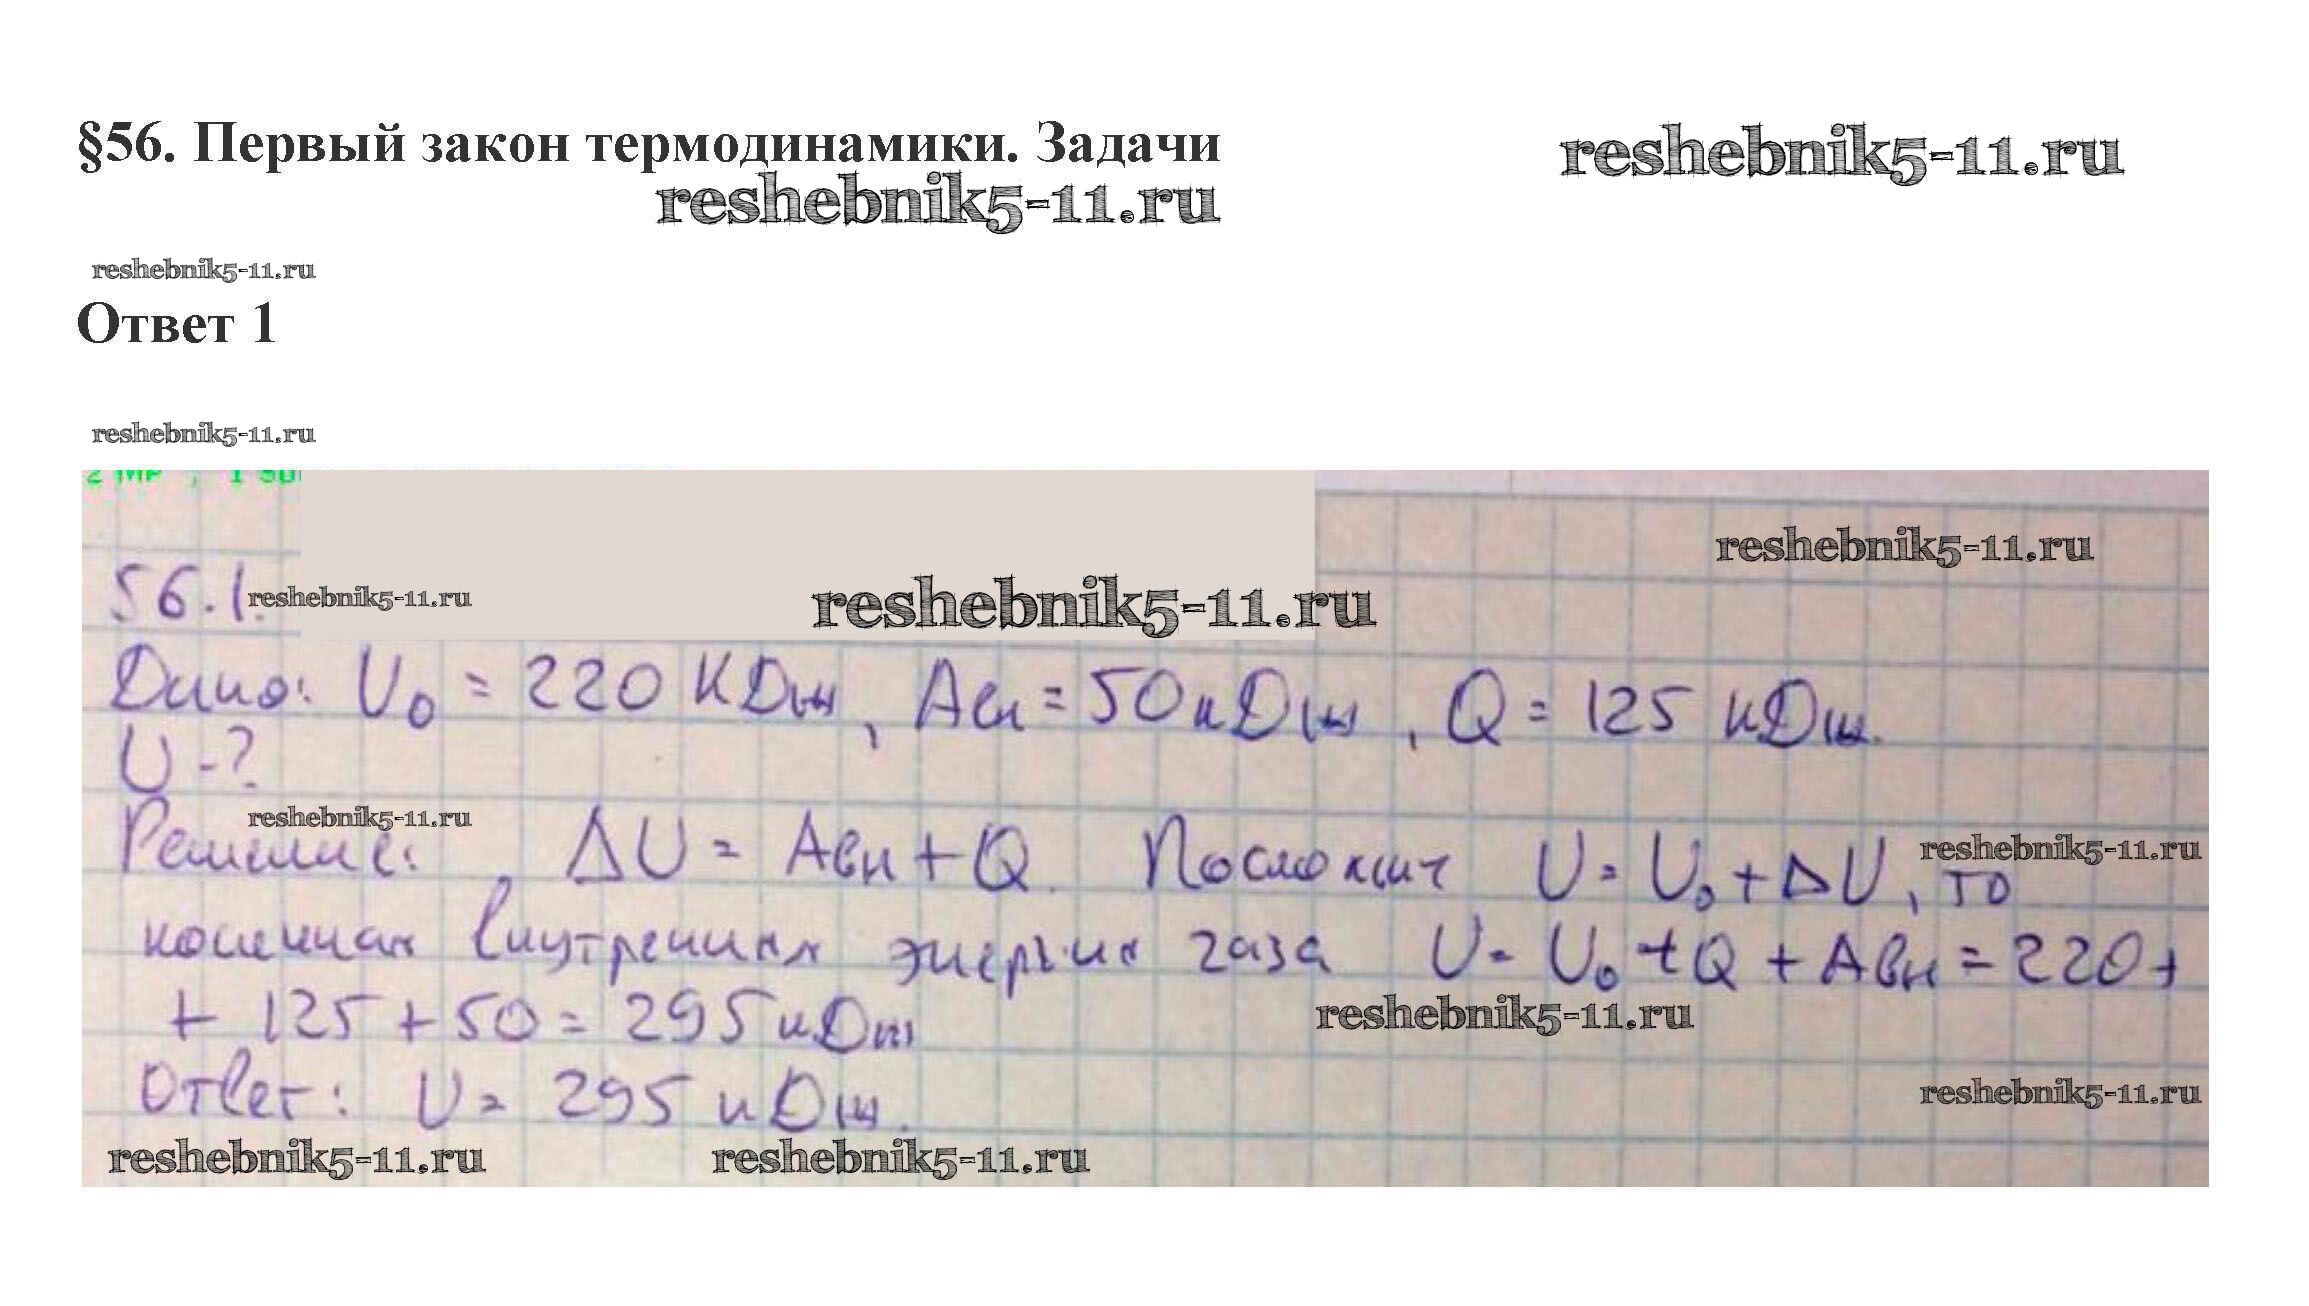 §56. Первый закон термодинамики. Задачи
reshebnik5-11.ru
reshebnik5-11.ru
reshebnik5-11.ru
Ответ 1
reshebnik5-11.ru
reshebnik5-11.ru
56.1. reshebnik5-11.ru
reshebnik5-11.ru
Дано: U₀ = 220 КДж, Aвн = 50 кДж, Q = 125 кДж.
U - ?
reshebnik5-11.ru
Решение: ΔU = Aвн + Q. Поскольку U = U₀ + ΔU, то
reshebnik5-11.ru
конечная внутренняя энергия газа U = U₀ + Q + Aвн = 220 +
+ 125 + 50 = 295 кДж
reshebnik5-11.ru
Ответ: U = 295 кДж.
reshebnik5-11.ru
reshebnik5-11.ru
reshebnik5-11.ru